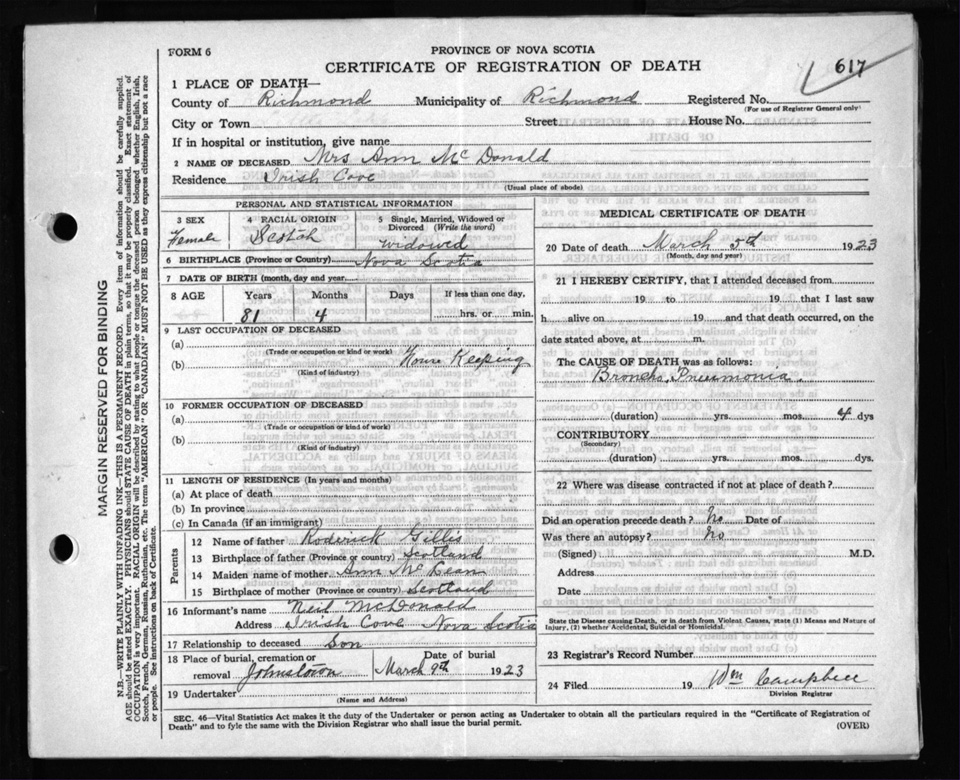 FORM 6
PROVINCE OF NOVA SCOTIA
CERTIFICATE OF REGISTRATION OF DEATH
617
1 PLACE OF DEATH—
County of Richmond Municipality of Richmond Registered No.
(For use of Registrar General only)
City or Town Street House No.
If in hospital or institution, give name
2 NAME OF DECEASED Mrs Ann McDonald
Residence Irish Cove
(Usual place of abode)
PERSONAL AND STATISTICAL INFORMATION
3 SEX
Female
4 RACIAL ORIGIN
Scotch
5 Single, Married, Widowed or
Divorced (Write the word)
widowed
6 BIRTHPLACE (Province or Country) Nova Scotia
7 DATE OF BIRTH (month, day and year)
8 AGE Years Months Days If less than one day,
81 4 hrs. or min.
9 LAST OCCUPATION OF DECEASED
(a)
(Trade or occupation or kind or work)
(b) House Keeping
(Kind of industry)
10 FORMER OCCUPATION OF DECEASED
(a)
(Trade or occupation or kind of work)
(b)
(Kind of industry)
11 LENGTH OF RESIDENCE (In years and months)
(a) At place of death
(b) In province
(c) In Canada (if an immigrant)
Parents
12 Name of father Roderick Gillis
13 Birthplace of father (Province or country) Scotland
14 Maiden name of mother Ann McLean
15 Birthplace of mother (Province or country) Scotland
16 Informant's name Neil McDonald
Address Irish Cove Nova Scotia
17 Relationship to deceased Son
18 Place of burial, cremation or Date of burial
removal Johnstown March 9th 1923
19 Undertaker
(Name and Address)
MEDICAL CERTIFICATE OF DEATH
20 Date of death March 5th 1923
(Month, day and year)
21 I HEREBY CERTIFY, that I attended deceased from
19 to 19 that I last saw
h alive on 19 and that death occurred, on the
date stated above, at m.
The CAUSE OF DEATH was as follows:
Broncho Pneumonia.
(duration) yrs. mos. 4 dys
CONTRIBUTORY
(Secondary)
(duration) yrs. mos. dys.
22 Where was disease contracted if not at place of death?
Did an operation precede death? No Date of
Was there an autopsy? No
(Signed) M.D.
Address
Date
State the Disease causing Death, or in death from Violent Causes, state (1) Means and Nature of
Injury, (2) whether Accidental, Suicidal or Homicidal.
23 Registrar's Record Number
24 Filed 19 Wm Campbell
Division Registrar
SEC. 46—Vital Statistics Act makes it the duty of the Undertaker or person acting as Undertaker to obtain all the particulars required in the "Certificate of Registration of
Death" and to fyle the same with the Division Registrar who shall issue the burial permit.
(OVER)
MARGIN RESERVED FOR BINDING
N.B.—WRITE PLAINLY WITH UNFADING INK—THIS IS A PERMANENT RECORD. Every item of information should be carefully supplied.
AGE should be stated EXACTLY. PHYSICIANS should STATE CAUSE OF DEATH in plain terms, so that it may be properly classified. Exact statement of
OCCUPATION is very important. RACIAL ORIGIN will be described by stating to what people or tongue the deceased person belonged whether English, Irish,
Scotch, French, German, Russian, Ruthenian, etc. The terms "AMERICAN" OR "CANADIAN" MUST NOT BE USED as they express citizenship but not a race
or people. See instructions on back of Certificate.